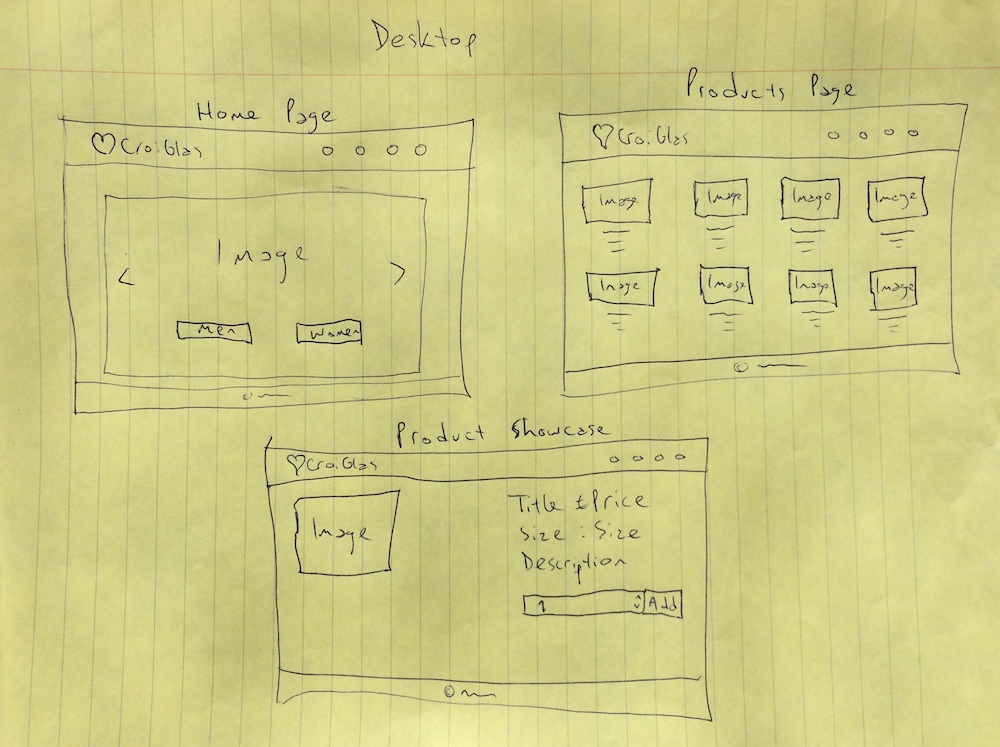 Desktop
Home Page
♡ Croi Glas
Image
< >
Men Women
©
Products Page
♡ Croi Glas
Image Image Image Image
Image Image Image Image
©
Product Showcase
♡ Croi Glas
Image
Title £Price
Size : Size
Description
1 Add
©